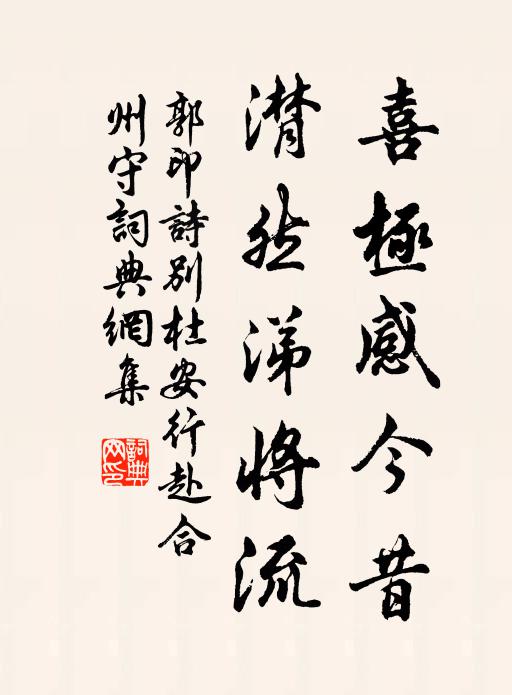 喜極感今昔
潸然涕將流
郭印詩別杜安行赴合
州守詞典網集
詞典网印